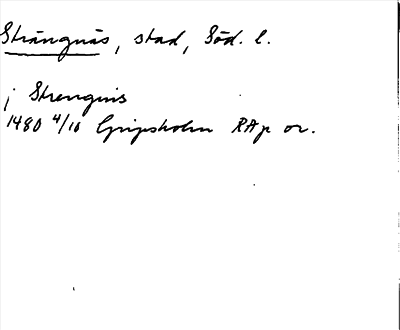 Strängnäs, stad, Söd. l.
j Strengnis
1480 4/10 Gripsholm RAp or.